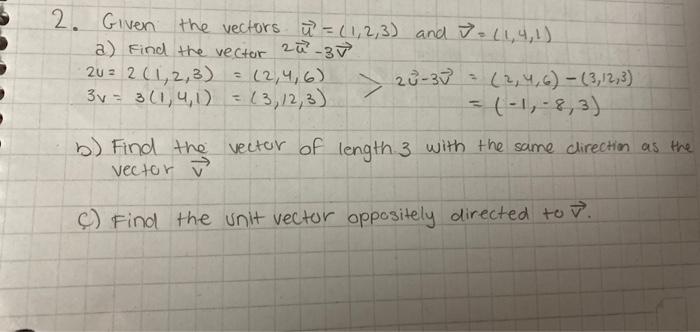 2. Given the vectors u⃗ = (1,2,3) and v⃗ = (1,4,1)
a) Find the vector 2u⃗ - 3v⃗
2u = 2(1,2,3) = (2,4,6)
3v = 3(1,4,1) = (3,12,3)
> 2u⃗-3v⃗ = (2,4,6) - (3,12,3)
= (-1,-8,3)
b) Find the vector of length 3 with the same direction as the
vector v⃗
c) Find the unit vector oppositely directed to v⃗.